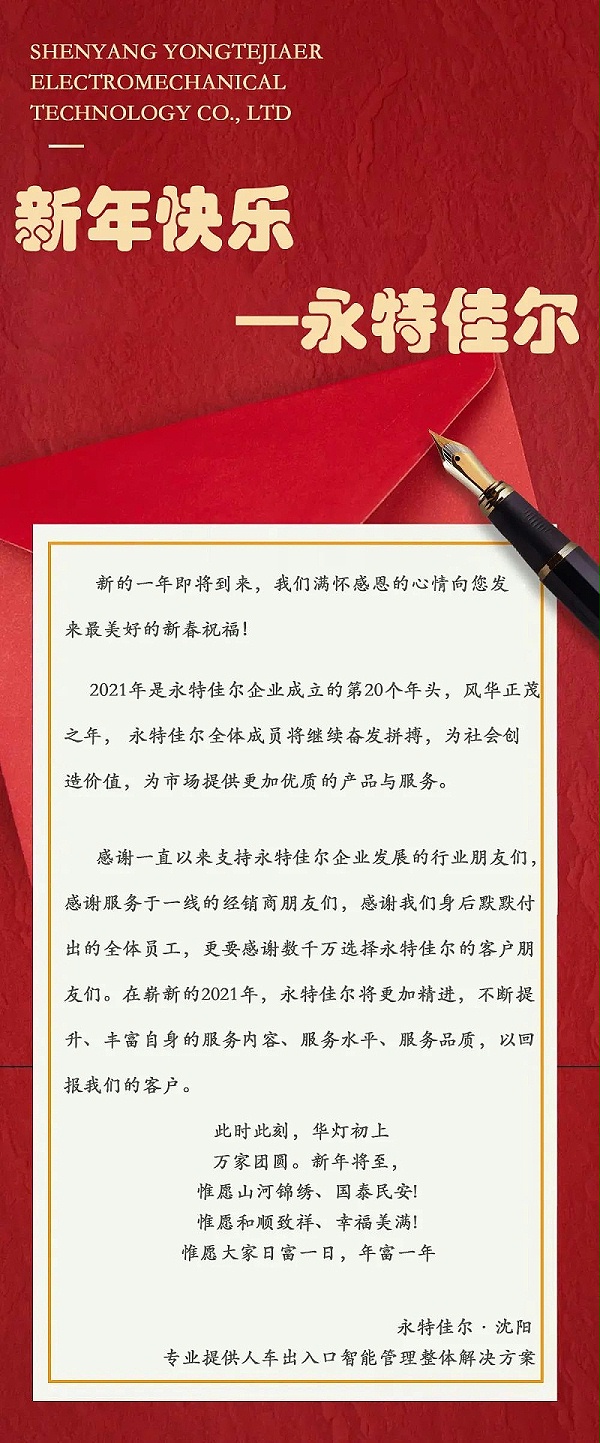 SHENYANG YONGTEJIAER
ELECTROMECHANICAL
TECHNOLOGY CO., LTD
新年快乐
—永特佳尔
新的一年即将到来，我们满怀感恩的心情向您发
来最美好的新春祝福！
2021年是永特佳尔企业成立的第20个年头，风华正茂
之年， 永特佳尔全体成员将继续奋发拼搏，为社会创
造价值，为市场提供更加优质的产品与服务。
感谢一直以来支持永特佳尔企业发展的行业朋友们，
感谢服务于一线的经销商朋友们，感谢我们身后默默付
出的全体员工，更要感谢数千万选择永特佳尔的客户朋
友们。在崭新的2021年，永特佳尔将更加精进，不断提
升、丰富自身的服务内容、服务水平、服务品质，以回
报我们的客户。
此时此刻，华灯初上
万家团圆。新年将至，
惟愿山河锦绣、国泰民安!
惟愿和顺致祥、幸福美满!
惟愿大家日富一日，年富一年
永特佳尔 · 沈阳
专业提供人车出入口智能管理整体解决方案